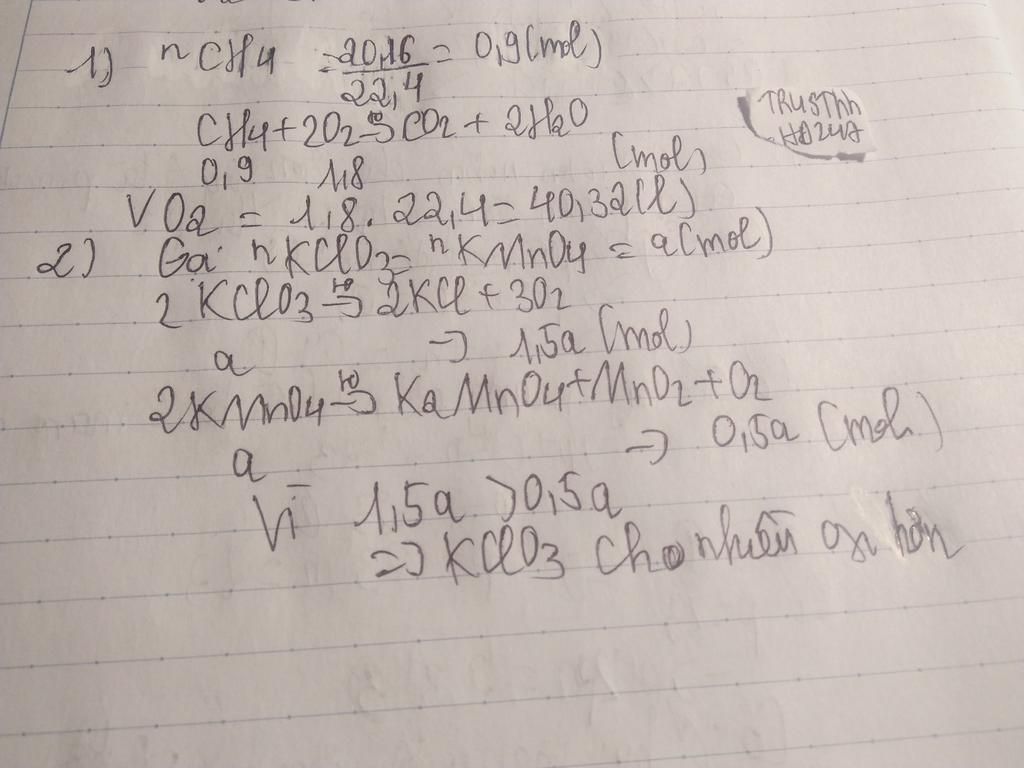 1) nCH4 = 20,16/22,4 = 0,9(mol)
CH4 + 2O2 to→ CO2 + 2H2O
0,9 1,8 (mol)
VO2 = 1,8 . 22,4 = 40,32(l)
2) Gá nKClO3 = nKMnO4 = a(mol)
2KClO3 to→ 2KCl + 3O2
a → 1,5a (mol)
2KMnO4 to→ K2MnO4 + MnO2 + O2
a → 0,5a (mol)
Vì 1,5a > 0,5a
=> KClO3 cho nhiều oxi hơn
TRUSTnn
HĐ247